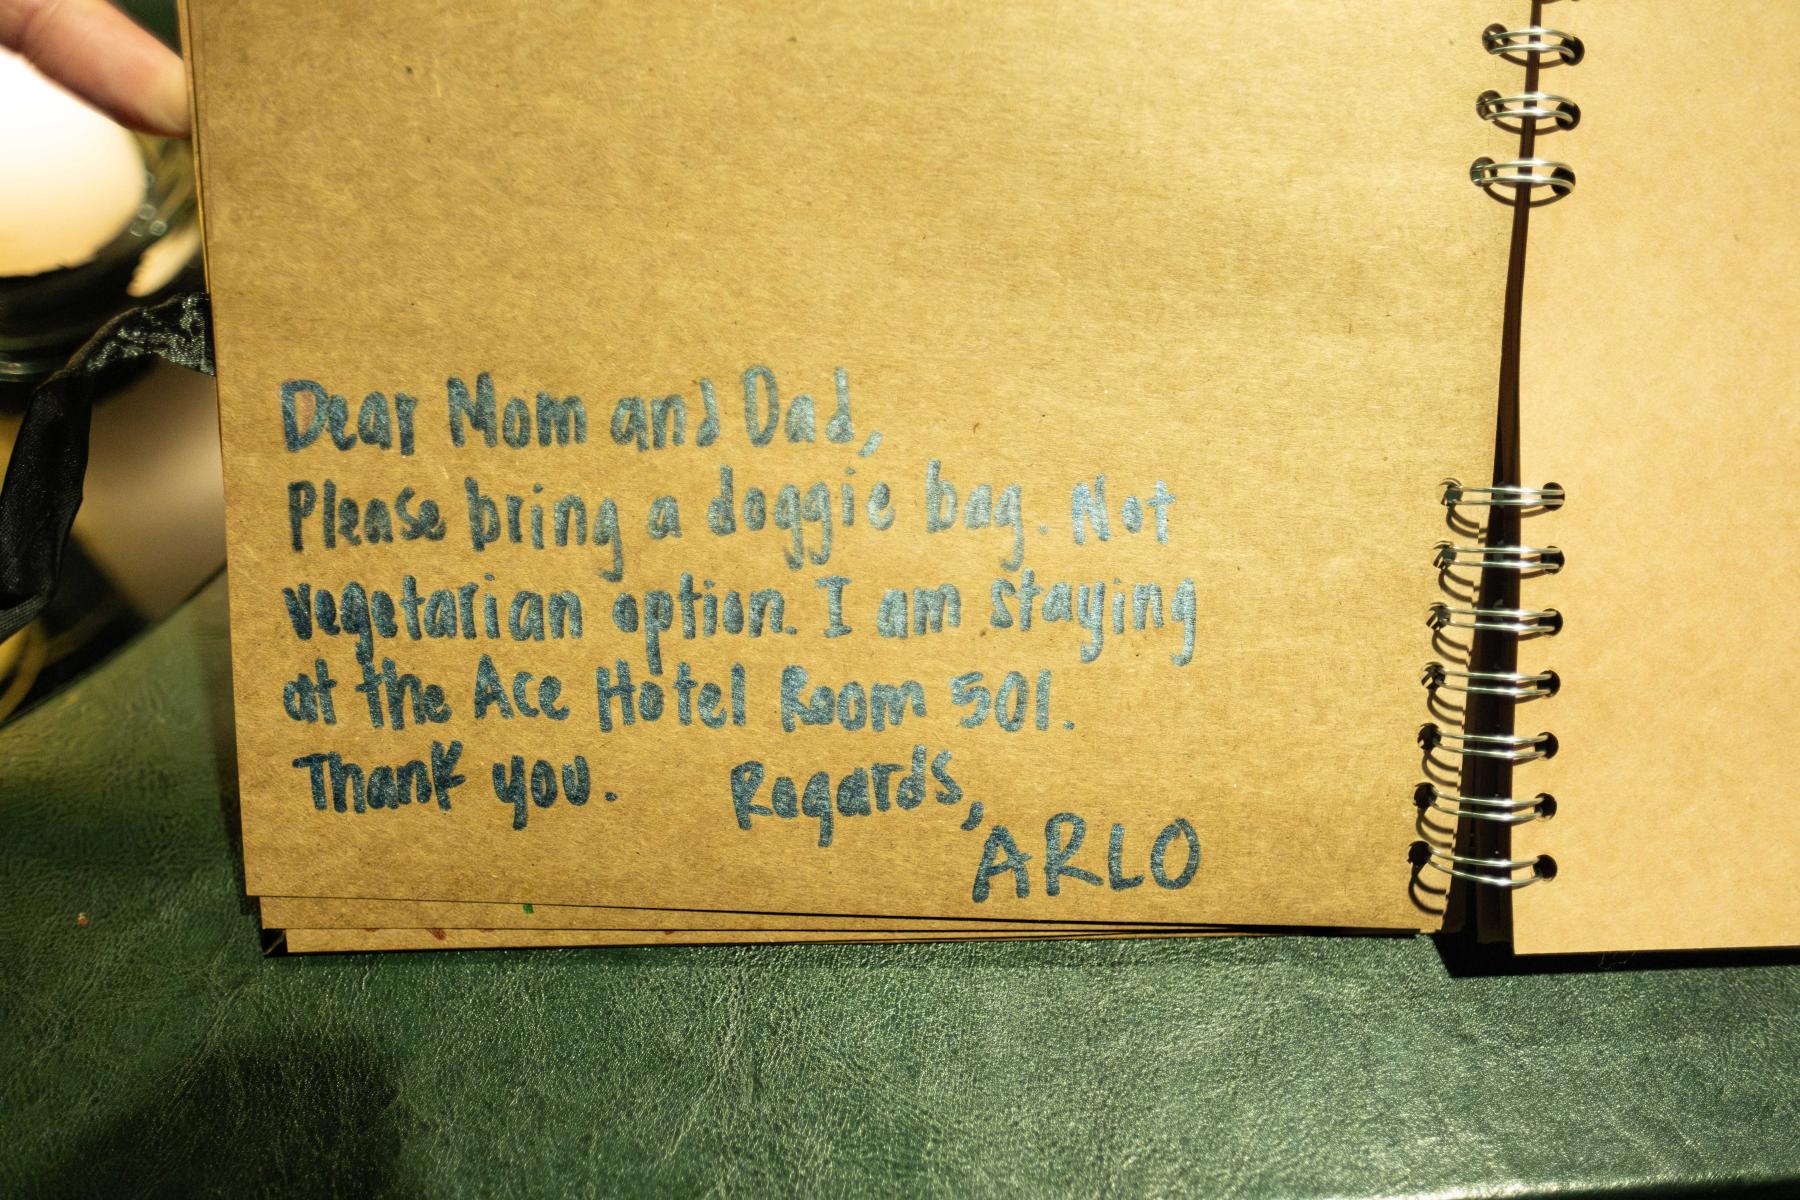 Dear Mom and Dad,
Please bring a doggie bag. Not
vegetarian option. I am staying
at the Ace Hotel Room 501.
Thank you. Regards,
ARLO